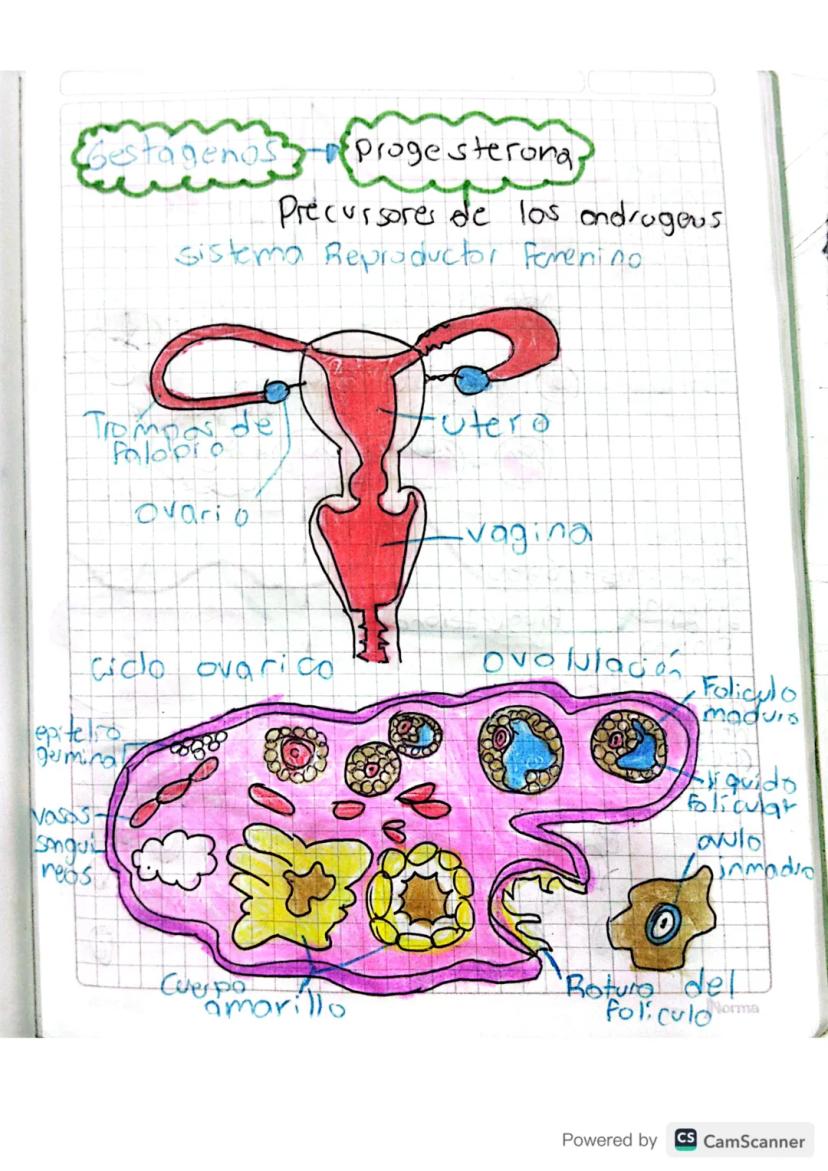 Gestagenos
Progesterona
Precursores de los androgeus
Sistema Reproductor Femenino
Trompas de
Falopio
Utero
Ovario
vagina
Ciclo ovarico
Ovolulación
Foliculo
maduro
epitelio
germinal
líquido
Folicular
vasos
sangui
neos
ovulo
inmadro
Cuerpo
amarillo
Rotura del
folículo
Norma
Powered by CS CamScanner